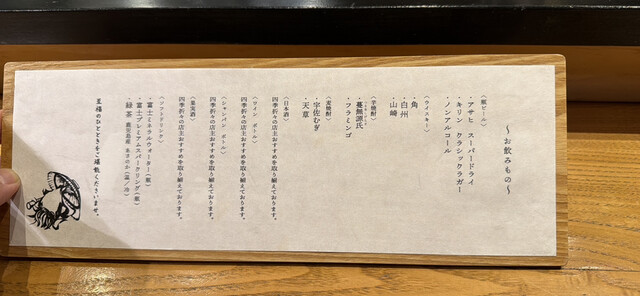 ～お飲みもの～
〈瓶ビール〉
・アサヒ スーパードライ
・キリン クラシックラガー
・ノンアルコール
〈ウイスキー〉
・角
・白州
・山崎
〈芋焼酎〉
・蔓無源氏
・フラミンゴ
〈麦焼酎〉
・宇佐むぎ
・天草
〈日本酒〉
四季折々の店主おすすめを取り揃えております。
〈ワイン ボトル〉
四季折々の店主おすすめを取り揃えております。
〈シャンパン ボトル〉
四季折々の店主おすすめを取り揃えております。
〈果実酒〉
四季折々の店主おすすめを取り揃えております。
〈ソフトドリンク〉
・富士ミネラルウォーター(瓶)
・富士プレミアムスパークリング(瓶)
・緑茶 鹿児島産 あさのか(温/冷)
至福のひとときをご堪能くださいませ。